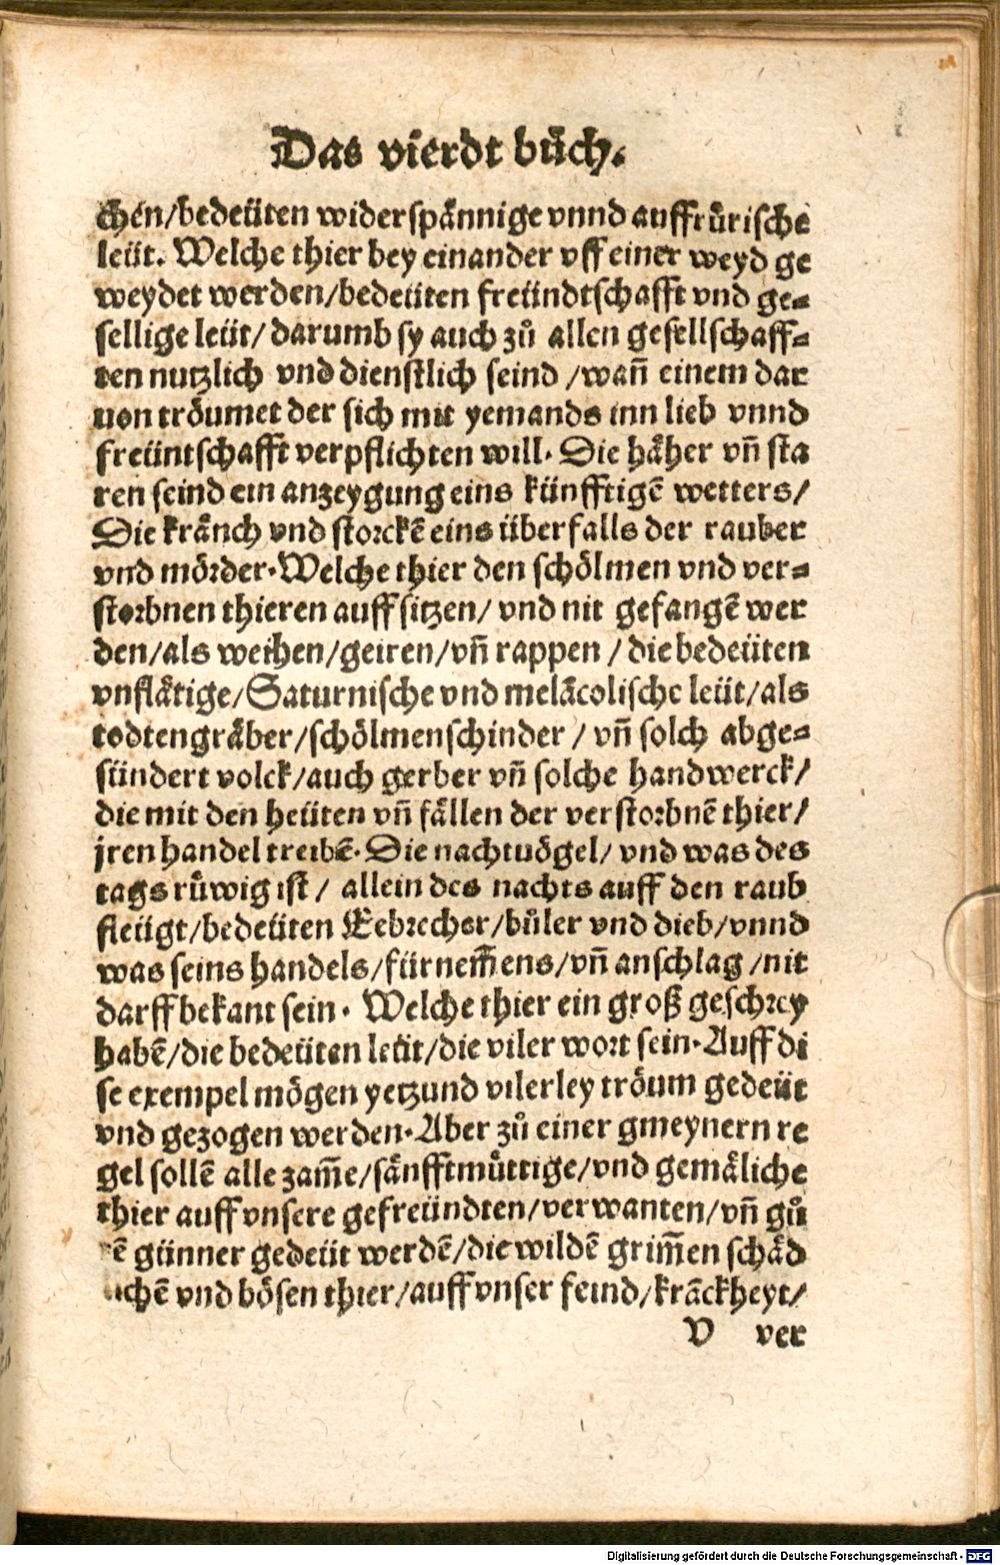 Das vierdt bůch.
chen/bedeüten widerspännige vnnd auffrůrische
leüt. Welche thier bey einander vff einer weyd ge
weydet werden/bedeüten freündtschafft vnd ge-
sellige leüt/darumb sy auch zů allen gesellschaff-
ten nutzlich vnd dienstlich seind/wañ einem dar
uon tröumet der sich mit yemands inn lieb vnnd
freüntschafft verpflichten will. Die häher vñ sta
ren seind ein anzeygung eins künfftigẽ wetters/
Die kränch vnd storckẽ eins überfalls der rauber
vnd mörder. Welche thier den schölmen vnd ver-
storbnen thieren auffsitzen/vnd nit gefangẽ wer
den/als weihen/geiren/vñ rappen/die bedeüten
vnflätige/Saturnische vnd melãcolische leüt/als
todtengräber/schölmenschinder/vñ solch abge-
sündert volck/auch gerber vñ solche handwerck/
die mit den heüten vñ fällen der verstorbnẽ thier/
jren handel treibẽ. Die nachtuögel/vnd was des
tags rüwig ist/allein des nachts auff den raub
fleügt/bedeüten Eebrecher/bůler vnd dieb/vnnd
was seins handels/fürnem̃ens/vñ anschlag/nit
darff bekant sein. Welche thier ein groß geschrey
habẽ/die bedeüten leüt/die viler wort sein. Auff di
se exempel mögen yetzund vilerley tröum gedeüt
vnd gezogen werden. Aber zů einer gmeynern re
gel sollẽ alle zam̃e/sänfftmůttige/vnd gemäliche
thier auff vnsere gefreündten/verwanten/vñ gů
ẽ günner gedeüt werdẽ/die wildẽ grim̃en schäd
ichẽ vnd bösen thier/auff vnser feind/krãckheyt/
V ver
Digitalisierung gefördert durch die Deutsche Forschungsgemeinschaft - DFG